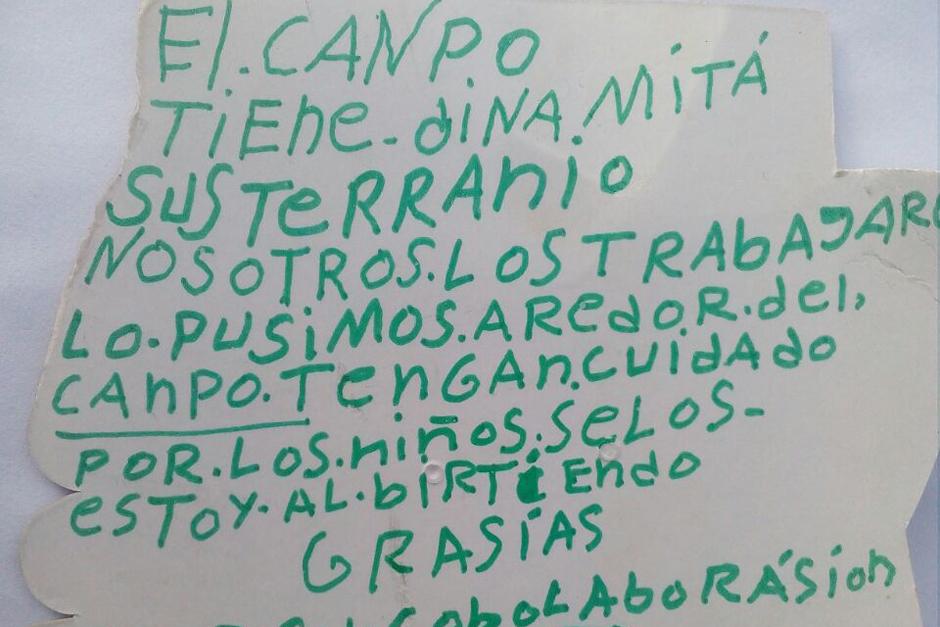 El.CANPO
TiEne-diNA.MiTÁ
SUSTeRRAnio
NOSOTROS.LOS TRAbAJARO
LO.PUSiMOS.ARedoR.del,
CAnPO.TenGAn.CUidAdo
POR.LOS.niñoS.SeLOS-
eSTOY.AL.biRTiEndo
GRASÍAS
CoboLAboRÁSion